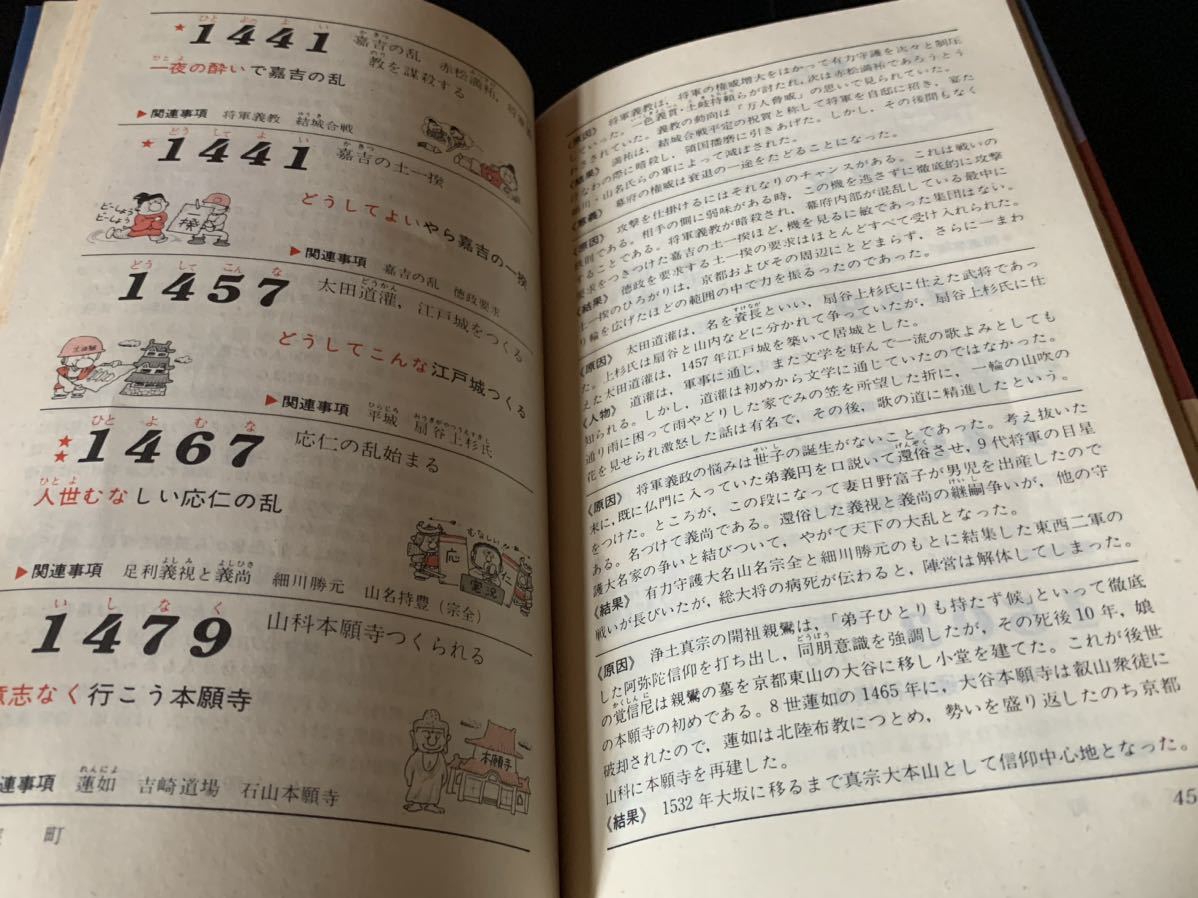 ひとよへよい
★1441
かきつ
嘉吉の乱 赤松満祐，将軍義
のり
教を謀殺する
ひとよ
一夜の酔いで嘉吉の乱
▶関連事項 将軍義教 結城合戦
ゆうき
どうしてよい
★1441
かきつ
嘉吉の土一揆
どーしよう
どーしよう
一揆
どうしてよいやら嘉吉の一揆
▶関連事項 嘉吉の乱 徳政要求
どうしてこんな
1457
どうかん
太田道灌，江戸城をつくる
どうしてこんな江戸城つくる
▶関連事項 平城 扇谷上杉氏
ひらじろ おうぎがやつうえすぎし
ひとよむな
★★1467
応仁の乱始まる
ひとよ
人世むなしい応仁の乱
むなしいかぁ
応
仁
実況
よしみ よしひさ
▶関連事項 足利義視と義尚 細川勝元 山名持豊(宗全)
いしなく
1479
山科本願寺つくられる
意志なく行こう本願寺
本願寺
れんにょ
連事項 蓮如 吉崎道場 石山本願寺
町
《原因》 将軍義教は，将軍の権威増大をはかって有力守護を次々と制圧
していった。一色義貫・土岐持頼らが討たれ，次は赤松満祐であろうとう
わさされていた。義教の動向は「万人脅威」の思いで見られていた。
《結果》 満祐は，結城合戦平定の祝賀と称して将軍を自邸に招き，宴た
けなわの際に暗殺し，領国播磨に引きあげた。しかし，その後間もなく
細川・山名氏らの軍によって滅ぼされた。
《意義》 幕府の権威は衰退の一途をたどることになった。
《原因》 攻撃を仕掛けるにはそれなりのチャンスがある。これは戦いの
鉄則である。相手の側に弱味がある時，この機を逃さずに徹底的に攻撃
することである。将軍義教が暗殺され，幕府内部が混乱している最中に
要求をつきつけた嘉吉の土一揆ほど，機を見るに敏であった集団はない。
《結果》 徳政を要求する土一揆の要求はほとんどすべて受け入れられた。
土一揆のひろがりは，京都およびその周辺にとどまらず，さらに一まわ
り輪を広げたほどの範囲の中で力を振るったのであった。
すけなが
《原因》 太田道灌は，名を資長といい，扇谷上杉氏に仕えた武将であっ
た。上杉氏は扇谷と山内などに分かれて争っていたが，扇谷上杉氏に仕
えた太田道灌は，1457年江戸城を築いて居城とした。
《人物》 道灌は，軍事に通じ，また文学を好んで一流の歌よみとしても
知られる。しかし，道灌は初めから文学に通じていたのではなかった。
通り雨に困って雨やどりした家でみの笠を所望した折に，一輪の山吹の
花を見せられ激怒した話は有名で，その後，歌の道に精進したという。
せいし
《原因》 将軍義政の悩みは世子の誕生がないことであった。考え抜いた
げんぞく
末に，既に仏門に入っていた弟義円を口説いて還俗させ，9代将軍の目星
をつけた。ところが，この段になって妻日野富子が男児を出産したので
けいし
名づけて義尚である。還俗した義視と義尚の継嗣争いが，他の守
護大名家の争いと結びついて，やがて天下の大乱となった。
《結果》 有力守護大名山名宗全と細川勝元のもとに結集した東西二軍の
戦いが長びいたが，総大将の病死が伝わると，陣営は解体してしまった。
《原因》 浄土真宗の開祖親鸞は，「弟子ひとりも持たず候」といって徹底
どうぼう
した阿弥陀信仰を打ち出し，同朋意識を強調したが，その死後10年，娘
かくしんに
の覚信尼は親鸞の墓を京都東山の大谷に移し小堂を建てた。これが後世
の本願寺の初めである。8世蓮如の1465年に，大谷本願寺は叡山衆徒に
破却されたので，蓮如は北陸布教につとめ，勢いを盛り返したのち京都
山科に本願寺を再建した。
《結果》 1532年大坂に移るまで真宗大本山として信仰中心地となった。
45